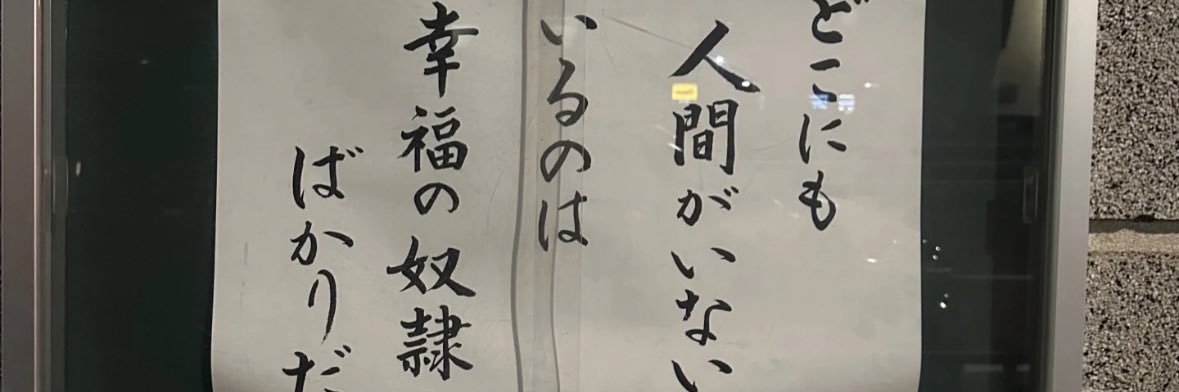 どこにも
人間がいない
いるのは
幸福の奴隷
ばかりだ